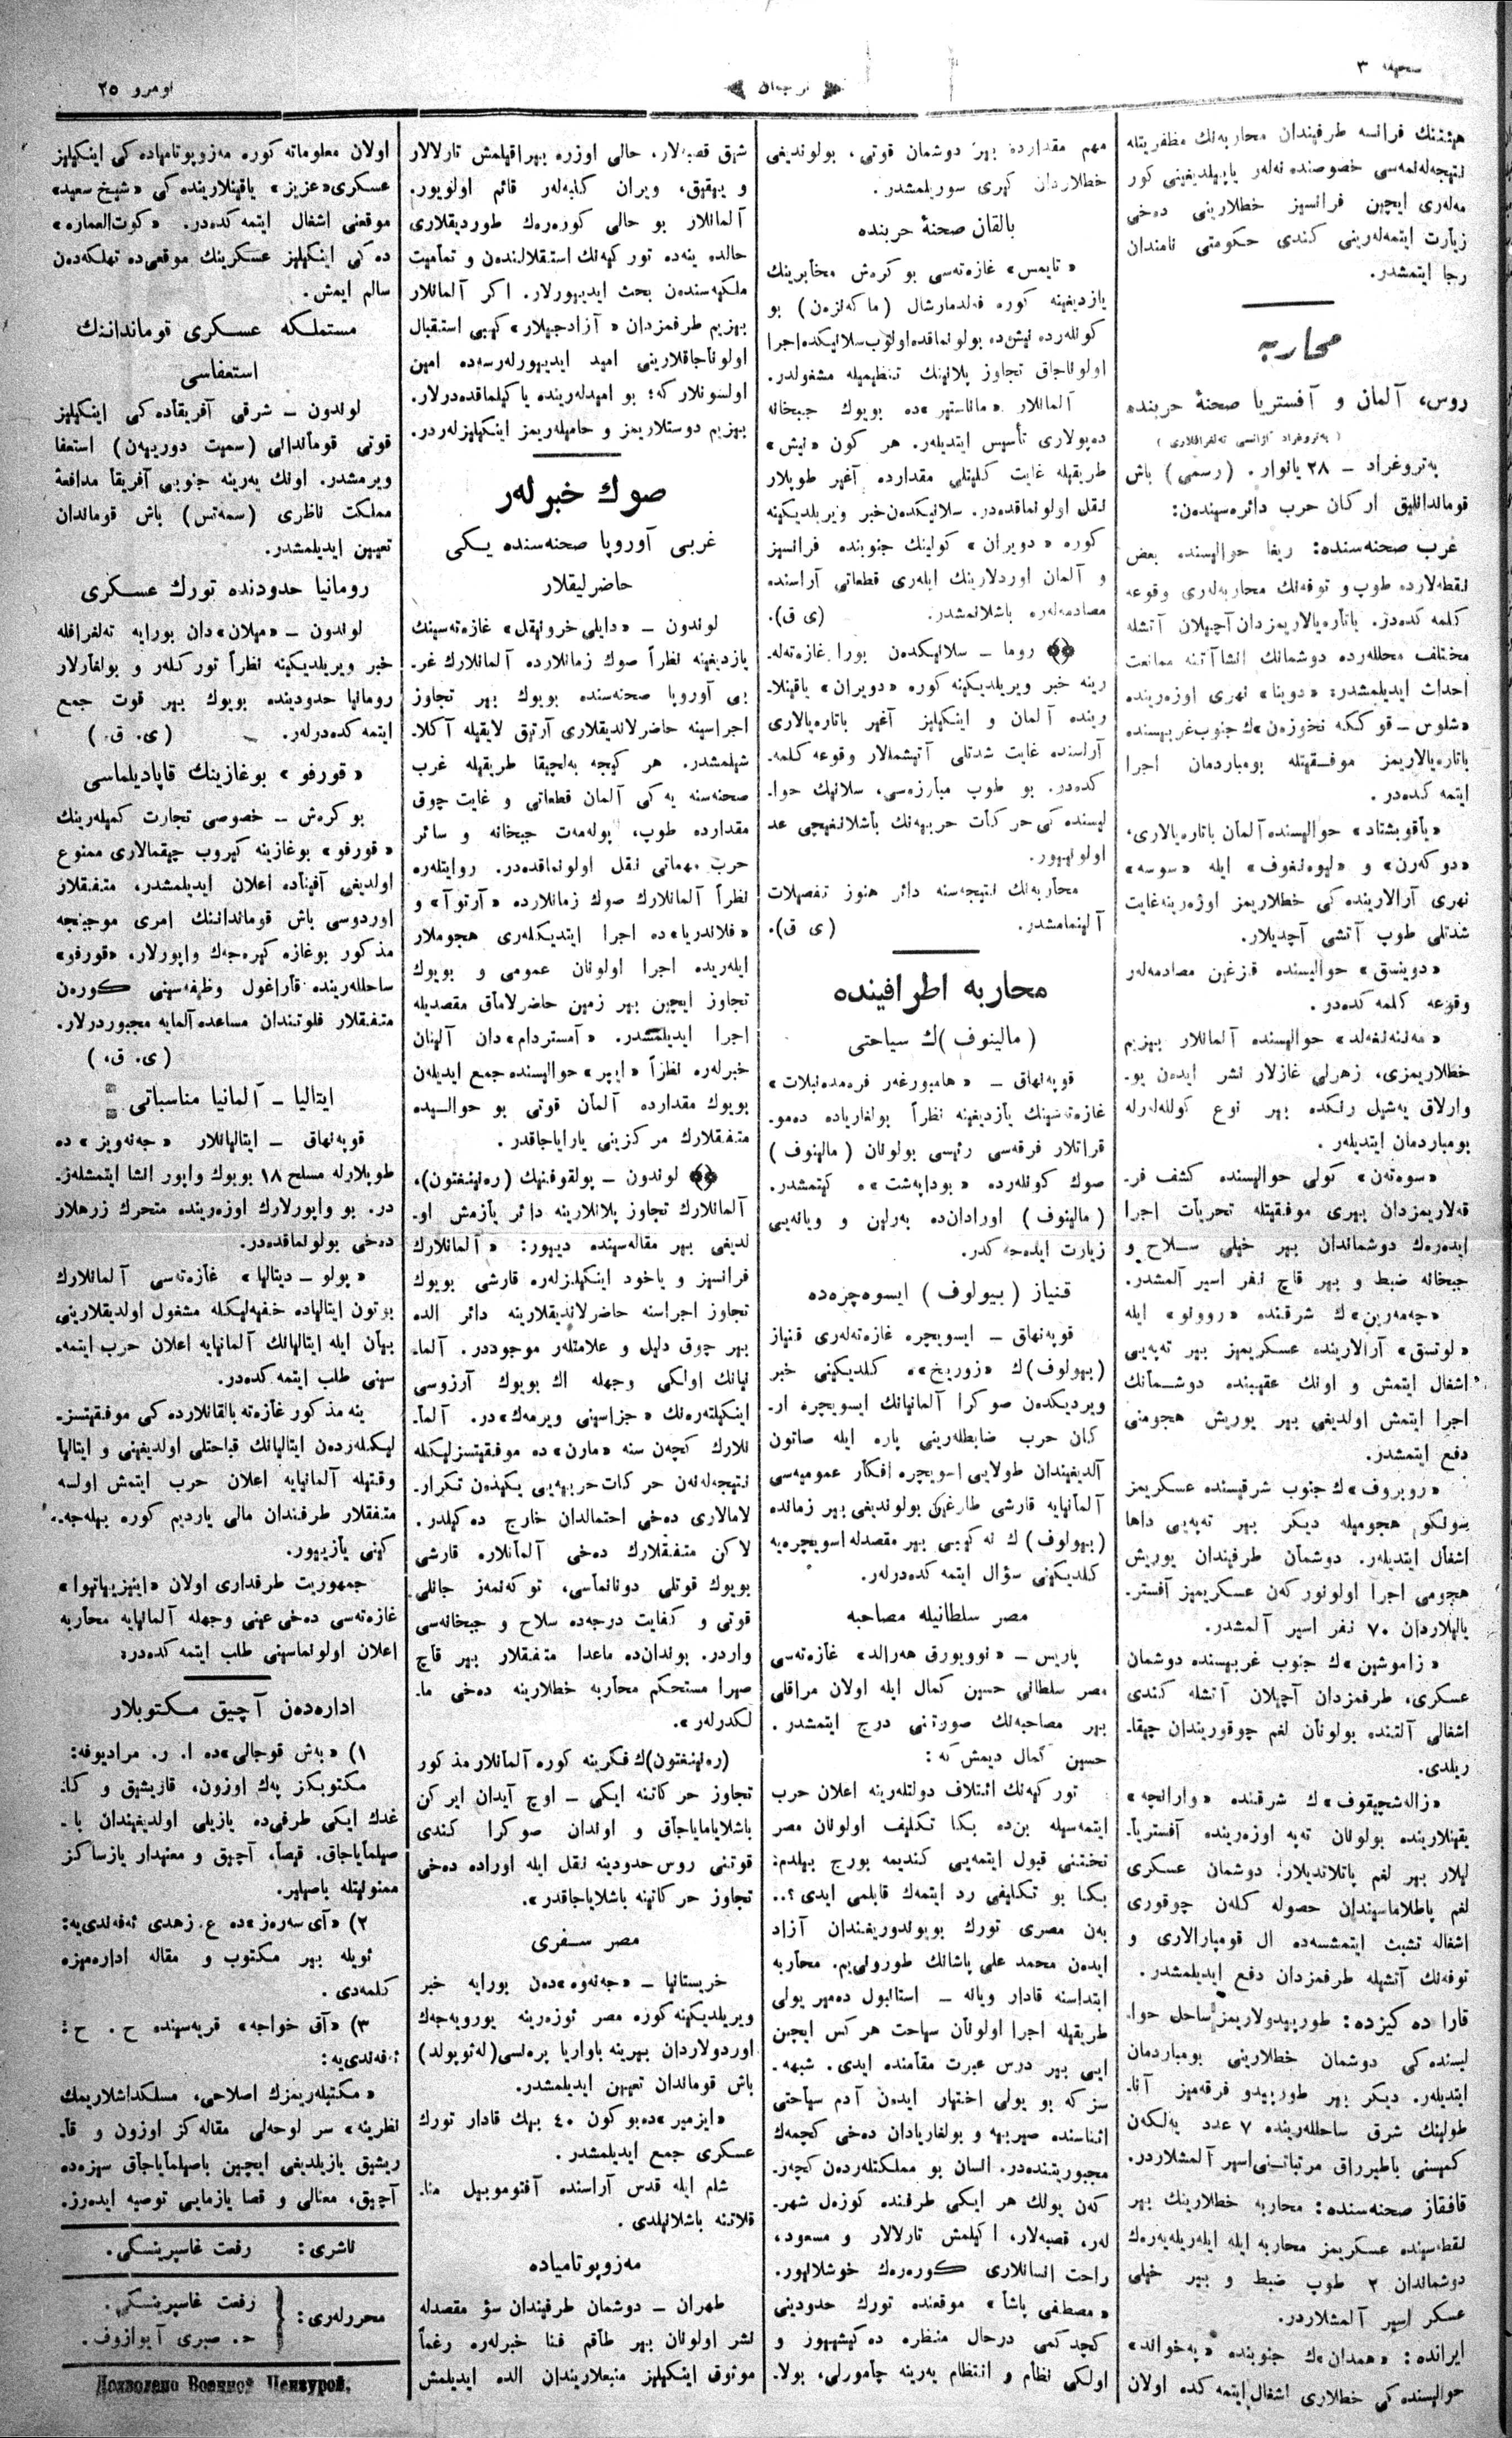 صحیفه ۳
ترجمان
نومرو ۲۵
هیئتنك فرانسه طرفیندان محاربه‌نك مظفریتله
نتیجه‌له‌نمه‌سی خصوصنده نه‌لر یاپیلدیغینی كور
مه‌لری ایچین فرانسیز خطلارینی ده‌خی
زیارت ایتمه‌لرینی كندی حكومتی نامندان
رجا ایتمشدر.
محاربه
روس، آلمان و آفستریا صحنهٔ حربنده
( په‌تروغراد آژانسی ته‌لغرافلاری )
په‌تروغراد ـ ۲۸ یانوار. (رسمی) باش
قوماندانلیق اركان حرب دائره‌سیندن:
غرب صحنه‌سنده: ریغا حوالیسنده بعض
نقطه‌لارده طوپ و توفه‌نك محاربه‌لری وقوعه
كلمه كده‌در. باتاره‌یالاریمزدان آچیلان آتشله
مختلف محللرده دوشمانك انشاآتنه ممانعت
احداث ایدیلمشدر: «دوینا» نهری اوزه‌رینده
«شلوس ـ قوككه نخوزه‌ن»ك جنوب غربیسنده
باتاره‌یالاریمز موفـقیتله بومباردمان اجرا
ایتمه كده‌در .
«یاقوبشتاد» حوالیسنده آلمان باتاره‌یالاری،
«دوكه‌رن» و «لیوه‌نغوف» ایله «سوسه»
نهری آرالارینده كی خطلاریمز اوزه‌رینه غایت
شدتلی طوپ آتشی آچدیلار.
«دوینسق» حوالیسنده قزغین مصادمه‌لر
وقوعه كلمه كده‌در .
حوالیسنده آلمانلار بیزیم
خطلاریمزی، زهرلی غازلار نشر ایده‌ن یو-
وارلاق یه‌شیل رنكده بیر نوع كولله‌لرله
بومباردمان ایتدیلر .
«سوه‌ته‌ن» كولی حوالیسنده كشف فر-
قه‌لاریمزدان بیری موفقیتله تحریات اجرا
ایده‌ره‌ك دوشماندان بیر خیلی سـلاح و
جبخانه ضبط و بیر قاچ نفر اسیر آلمشدر.
«چه‌مه‌رین»ك شرقنده «روونو» ایله
«لوتسق» آرالارینده عسكریمیز بیر ته‌په‌یی
اشغال ایتمش و اونك عقیبنده دوشـمانك
اجرا ایتمش اولدیغی بیر یوریش هجومنی
دفع ایتمشدر.
«روبروف»ك جنوب شرقیسنده عسكریمز
سونكو هجومیله دیكر بیر ته‌په‌یی داها
اشغال ایتدیلر. دوشمان طرفیندان یوریش
هجومی اجرا اولونوركه‌ن عسكریمیز آفستر-
یالیلاردان ۷۰ نفر اسیر آلمشدر.
«زاموشین»ك جنوب غربیسنده دوشمان
عسكری، طرفمزدان آچیلان آتشله كندی
اشغالی آلتنده بولونان لغم چوقوریندان چیقا-
ریلدی.
«زاله‌شچیقوف»ك شرقنده «وارانچه»
یقینلارینده بولونان ته‌په اوزه‌رینده آفستریا-
لیلار بیر لغم پاتلاتدیلار. دوشمان عسكری
لغم پاطلاماسیندان حصوله كله‌ن چوقوری
اشغاله تشبث ایتمشسه‌ده ال قومبارالاری و
توفه‌نك آتشیله طرفمزدان دفع ایدیلمشدر.
قارا ده كیزده: طورپیدولاریمز ساحل حوا-
لیسنده كی دوشمان خطلارینی بومباردمان
ایتدیلر. دیكر بیر طورپیدو فرقه‌میز آنا-
طولینك شرق ساحللرینده ۷ عدد یه‌لكه‌ن
كمیسنی باطیراراق مرتباتینی اسیر آلمشلاردر.
قافقاز صحنه‌سنده: محاربه خطلارینك بیر
نقطه‌سینده عسكریمز محاربه ایله ایله‌ریله‌یه‌ره‌ك
دوشماندان ۲ طوپ ضبط و بیر خیلی
عسكر اسیر آلمشلاردر.
ایرانده: «همدان»ك جنوبنده
حوالیسنده كی خطلاری اشغال ایتمه كده اولان
مهم مقدارده بیر دوشمان قوتی، بولوندیغی
خطلاردان كیری سوریلمشدر.
بالقان صحنهٔ حربنده
«تایمس» غازه‌ته‌سی بوكره‌ش مخابرینك
یازدیغینه كوره فه‌لدمارشال (ماكه‌نزه‌ن) بو
كونلرده نیش‌ده بولونماقده اولوب سلانیكده اجرا
اولوناجاق تجاوز پلانینك تنظیمیله مشغولدر.
آلمانلار «ماناستیر»ده بویوك جبخانه
ده‌پولاری تأسیس ایتدیلر. هر كون «نیش»
طریقیله غایت كلیتلی مقدارده آغیر طوپلار
نقل اولونماقده‌در. سلانیكده‌ن خبر ویریلدیكینه
كوره «دویران» كولینك جنوبنده فرانسیز
و آلمان اوردولارینك ایله‌ری قطعاتی آراسنده
مصادمه‌لره باشلانمشدر. (ی ق).
روما ـ سلانیكده‌ن بورا غازه‌ته‌له-
رینه خبر ویریلدیكینه كوره «دویران» یاقینلا-
رینده آلمان و اینكیلیز آغیر باتاره‌یالاری
آراسنده غایت شدتلی آتیشمالار وقوعه كلمه-
كده‌در. بو طوپ مبارزه‌سی، سلانیك حوا-
لیسنده كی حركات حربیه‌نك باشلانغیچی عد
اولونیور.
محاربه‌نك نتیجه‌سنه دائر هنوز تفصیلات
آلینمامشدر. (ی ق).
محاربه اطرافینده
(مالینوف)ك سیاحتی
قوپه‌نهاق ـ «هامبورغه‌ر فره‌مده‌نبلات»
غازه‌ته‌سینك یازدیغینه نظراً بولغاریاده ده‌مو-
قراتلار فرقه‌سی رئیسی بولونان (مالینوف)
صوك كونلرده «بوداپه‌شت»ه كیتمشدر.
(مالینوف) اورادان‌ده به‌رلین و ویانه‌یی
زیارت ایده‌جه كدر.
قنیاز (بیولوف) ایسوه‌چره‌ده
قوپه‌نهاق ـ ایسویچره غازه‌ته‌لری قنیاز
(بیولوف)ك «زوریخ»ه كلدیكینی خبر
ویردیكده‌ن صوكرا آلمانیانك ایسویچره ار-
كان حرب ضابطلرینی پاره ایله صاتون
آلدیغیندان طولایی اسویچره افكار عمومیه‌سی
آلمانیایه قارشی طارغین بولوندیغی بیر زمانده
(بیولوف)ك نه كیبی بیر مقصدله اسویچره‌یه
كلدیكینی سؤال ایتمه كده‌درلر.
مصر سلطانیله مصاحبه
پاریس ـ «نوویورق هه‌رالد» غازه‌ته‌سی
مصر سلطانی حسین كمال ایله اولان مراقلی
بیر مصاحبه‌نك صورتنی درج ایتمشدر.
حسین كمال دیمش كه:
توركیه‌نك ائتلاف دولتلرینه اعلان حرب
ایتمه‌سیله بن‌ده بكا تكلیف اولونان مصر
تختنی قبول ایتمه‌یی كندیمه بورج بیلدم:
بكا بو تكلیفی رد ایتمه‌ك قابلمی ایدی؟..
به‌ن مصری تورك بویوندوریغندان آزاد
ایده‌ن محمد علی پاشانك طورونی‌یم. محاربه
ابتداسنه قادار ویانه ـ استانبول ده‌میر یولی
طریقیله اجرا اولونان سیاحت هركس ایچین
ایی بیر درس عبرت مقامنده ایدی. شبهه-
سز كه بو یولی اختیار ایده‌ن آدم سیاحتی
اثناسنده صیربیه و بولغاریادان ده‌خی كچمه‌ك
مجبوریتنده‌در. انسان بو مملكتلرده‌ن كچه‌ر-
كه‌ن یولك هر ایكی طرفنده كوزه‌ل شهر-
لر، قصبه‌لار، اكیلمش تارلالار و مسعود،
راحت انسانلاری كوره‌ره‌ك خوشلانیور.
«مصطفی پاشا» موقعنده تورك حدودینی
كچدكمی درحال منظره ده‌كیشییور و
اولكی نظام و انتظام یه‌رینه چامورلی، بولا-
شیق قصبه‌لار، حالی اوزره بیراقیلمش تارلالار
و ییقیق، ویران كلبه‌لر قائم اولویور.
آلمانلار بو حالی كوره‌ره‌ك طوردیقلاری
حالده ینه‌ده توركیه‌نك استقلالنده‌ن و تمامیت
ملكیه‌سنده‌ن بحث ایدییورلار. اكر آلمانلار
بیزیم طرفمزدان «آزادجیلار» كیبی استقبال
اولوناجاقلارینی امید ایدییورلرسه‌ده امین
اولسونلار كه؛ بو امیدلرینده یاكیلماقده‌درلار.
بیزیم دوستلاریمز و حامیلریمز اینكیلیزلردر.
صوك خبرلر
غربی آوروپا صحنه‌سنده یـكی
حاضرلیقلار
لوندون ـ «دایلی خرونیقل» غازه‌ته‌سینك
یازدیغینه نظراً صوك زمانلارده آلمانلارك غر-
بی آوروپا صحنه‌سنده بویوك بیر تجاوز
اجراسینه حاضرلاندیقلاری آرتیق لایقیله آكلا-
شیلمشدر. هر كیجه به‌لجیقا طریقیله غرب
صحنه‌سنه یه‌كی آلمان قطعاتی و غایت چوق
مقدارده طوپ، پوله‌مه‌ت جبخانه و سائر
حرب مهماتی نقل اولونماقده‌در. روایتلره
نظراً آلمانلارك صوك زمانلارده «آرتوآ» و
«فلاندریا»ده اجرا ایتدیكلری هجوملار
ایله‌ریده اجرا اولونان عمومی و بویوك
تجاوز ایچین بیر زمین حاضرلاماق مقصدیله
اجرا ایدیلمشدر. «آمستردام»دان آلینان
خبرلره نظراً «ایپر» حوالیسنده جمع ایدیله‌ن
بویوك مقدارده آلمان قوتی بو حوالـیده
متفقلارك مركزینی یاراجاقدر.
لوندون ـ پولقوفنیك (ره‌پینغتون)،
آلمانلارك تجاوز پلانلارینه دائر یازمش او-
لدیغی بیر مقاله‌سینده دییور: «آلمانلارك
فرانسیز و یاخود اینكیلیزلره قارشی بویوك
تجاوز اجراسنه حاضرلاندیقلارینه دائر الده
بیر چوق دلیل و علامتلر موجوددر. آلما-
نیانك اولكی وجهله اك بویوك آرزوسی
اینكیلتره‌نك «جزاسینی ویرمه‌ك»در. آلما-
نلارك كچه‌ن سنه «مارن»ده موفقیتسزلیكله
نتیجه‌له‌نه‌ن حركات حربیه‌یی یكیده‌ن تكرار-
لامالاری ده‌خی احتمالدان خارج ده‌كیلدر.
لاكن متفقلارك ده‌خی آلمانلاره قارشی
بویوك قوتلی دونانماسی، توكه‌نمه‌ز جانلی
قوتی و كفایت درجه‌ده سلاح و جبخانه‌سی
واردر. بوندان‌ده ماعدا متفقلار بیر قاچ
صیرا مستحكم محاربه خطلارینه ده‌خی ما-
لكدرلر».
(ره‌پینغتون)ك فكرینه كوره آلمانلار مذكور
تجاوز حركاتنه ایكی ـ اوچ آیدان ایركن
باشلایامایاجاق و اوندان صوكرا كندی
قوتنی روس حدودینه نقل ایله اوراده ده‌خی
تجاوز حركاتینه باشلایاجاقدر».
مصر سـفری
خریستانیا ـ «جه‌نه‌وه»ده‌ن بورایه خبر
ویریلدیكینه كوره مصر ئوزه‌رینه یورویه‌جه‌ك
اوردولاردان بیرینه باواریا پره‌نسی (له‌ئوپولد)
باش قوماندان تعیین ایدیلمشدر.
«ایزمیر»ده بو كون ۴۰ بیك قادار تورك
عسكری جمع ایدیلمشدر.
شام ایله قدس آراسنده آفتوموبیل منا-
قلاتنه باشلانیلدی.
مه‌زوپوتامیاده
طهران ـ دوشمان طرفیندان سؤ مقصدله
نشر اولونان بیر طاقم فنا خبرلره رغماً
موثوق اینكیلیز منبعلاریندان الده ایدیلمش
اولان معلوماته كوره مه‌زوپوتامیاده كی اینكیلیز
عسكری «عزیز» یاقینلارینده كی «شیخ سعید»
موقعنی اشغال ایتمه كده‌در. «كوت‌العماره»
ده كی اینكیلیز عسكرینك موقعی‌ده تهلكه‌ده‌ن
سالم ایمش.
مستملـكه عسكری قوماندانـنك
استعفاسی
لوندون ـ شرقی آفریقاده كی اینكیلیز
قوتی قوماندانی (سمیت دوریه‌ن) استعفا
ویرمشدر. اونك یه‌رینه جنوبی آفریقا مدافعهٔ
مملكت ناظری (سمه‌تس) باش قوماندان
تعیین ایدیلمشدر.
رومانیا حدودنده تورك عسـكری
لوندون ـ «میلان»دان بورایه ته‌لغرافله
خبر ویریلدیكینه نظراً توركلر و بولغارلار
رومانیا حدودینده بویوك بیر قوت جمع
ایتمه كده‌درلر. (ی. ق.)
«قورفو» بوغازینك قاپادیلماسی
بوكره‌ش ـ خصوصی تجارت كمیلرینك
«قورفو» بوغازینه كیروب چیقمالاری ممنوع
اولدیغی آفیناده اعلان ایدیلمشدر، متفقلار
اوردوسی باش قوماندانـنك امری موجبنجه
مذكور بوغازه كیره‌جه‌ك واپورلار، «قورفو»
ساحللرینده قاراغول وظیفه‌سینی كوره‌ن
متفقلار فلوتندان مساعده آلمایه مجبوردرلار.
(ی. ق.)
ایتالیا ـ آلمانیا مناسباتی
قوپه‌نهاق ـ ایتالیانلار «جه‌نه‌ویز»ده
طوپلارله مسلح ۱۸ بویوك واپور انشا ایتمشلر-
در. بو واپورلارك اوزه‌رینده متحرك زرهلار
ده‌خی بولونماقده‌در.
«پولو ـ دیتالیا» غازه‌ته‌سی آلمانلارك
بوتون ایتالیاده خفیه‌لیكله مشغول اولدیقلارینی
بیان ایله ایتالیانك آلمانیایه اعلان حرب ایتمه-
سینی طلب ایتمه كده‌در.
ینه مذكور غازه‌ته بالقانلارده كی موفقیتسز-
لیكلرده‌ن ایتالیانك قباحتلی اولدیغینی و ایتالیا
وقتیله آلمانیایه اعلان حرب ایتمش اولسه
متفقلار طرفندان مالی یاردیم كوره بیله‌جه-
كینی یازییور.
جمهوریت طرفداری اولان
غازه‌ته‌سی ده‌خی عینی وجهله آلمانیایه محاربه
اعلان اولونماسینی طلب ایتمه كده‌در.
اداره‌ده‌ن آچیق مـكتوبلار
۱) «به‌ش قوجالی»ده ا. ر. مرادیوفه:
مكتوبكز په‌ك اوزون، قاریشیق و كا-
غدك ایكی طرفی‌ده یازیلی اولدیغیندان با-
صیلمایاجاق. قیصا، آچیق و معنیدار یازساكز
ممنونیتله باصیلیر.
۲) «آی سه‌ره‌ز»ده ع. زهدی ئه‌فه‌ندی‌یه:
ئویله بیر مكتوب و مقاله اداره‌میزه
كلمه‌دی.
۳) «آق خواجه» قریه‌سینده ح. ح.
ئه‌فه‌ندی‌یه:
«مكتبلریمزك اصلاحی، مسلكداشلاریمك
نظرینه» سر لوحه‌لی مقاله‌كز اوزون و قا-
ریشیق یازیلدیغی ایچین باصیلمایاجاق سیزه‌ده
آچیق، معنالی و قصا یازمایی توصیه ایده‌رز.
ناشری: رفعت غاسپرینسكی.
محررلری: رفعت غاسپرینسكی.
ح. صبری آیوازوف.
Дозволено Военной Цензурой.